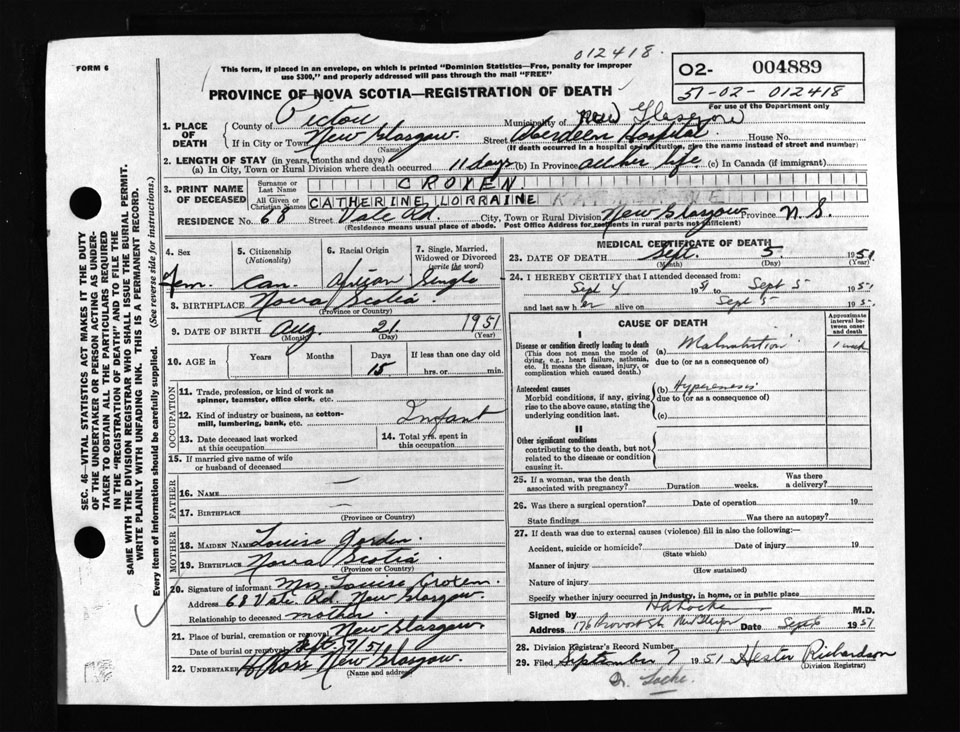 012418.
FORM 6
This form, if placed in an envelope, on which is printed "Dominion Statistics—Free, penalty for improper
use $300," and properly addressed will pass through the mail "FREE"
O2- 004889
51-02-012418
For use of the Department only
PROVINCE OF NOVA SCOTIA—REGISTRATION OF DEATH
1. PLACE OF DEATH
County of Pictou Municipality of New Glasgow
If in City or Town New Glasgow. Street Aberdeen Hospital. House No.
(Name) (If death occurred in a hospital or institution, give the name instead of street and number)
2. LENGTH OF STAY (in years, months and days)
(a) In City, Town or Rural Division where death occurred 11 days (b) In Province all her life. (c) In Canada (if immigrant)
3. PRINT NAME OF DECEASED
Surname or Last Name CROXEN.
All Given or Christian Names CATHERINE LORRAINE
RESIDENCE No. 68 Street Vale Rd. City, Town or Rural Division New Glasgow Province N.S.
(Residence means usual place of abode. Post Office Address for residents in rural parts not sufficient)
4. Sex 5. Citizenship (Nationality) 6. Racial Origin 7. Single, Married, Widowed or Divorced (write the word)
Fem. Can. African Single
8. BIRTHPLACE Nova Scotia
(Province or Country)
9. DATE OF BIRTH Aug 21 1951
(Month) (Day) (Year)
10. AGE in Years Months Days If less than one day old
15 hrs. or min.
OCCUPATION
11. Trade, profession, or kind of work as
spinner, teamster, office clerk, etc.
12. Kind of industry or business, as cotton-
mill, lumbering, bank, etc. Infant
13. Date deceased last worked
at this occupation
14. Total yrs. spent in
this occupation
15. If married give name of wife
or husband of deceased
FATHER
16. NAME —
17. BIRTHPLACE —
(Province or Country)
MOTHER
18. MAIDEN NAME Louise Jorden
19. BIRTHPLACE Nova Scotia
(Province or Country)
20. Signature of informant Mrs. Louise Croxen.
Address 68 Vale Rd. New Glasgow.
Relationship to deceased mother.
21. Place of burial, cremation or removal New Glasgow
Date of burial or removal Sept. 7/51
22. Undertaker New Glasgow.
(Name and address)
MEDICAL CERTIFICATE OF DEATH
23. DATE OF DEATH Sept. 5. 1951
(Month) (Day) (Year)
24. I HEREBY CERTIFY that I attended deceased from
Sept 4 1951 to Sept 5 1951
and last saw her alive on Sept 5 195
CAUSE OF DEATH
Approximate interval between onset and death
I
Disease or condition directly leading to death
(This does not mean the mode of
dying, e.g., heart failure, asthenia,
etc. It means the disease, injury, or
complication which caused death.)
(a) Malnutrition 1 week
due to (or as a consequence of)
Antecedent causes
Morbid conditions, if any, giving
rise to the above cause, stating the
underlying condition last.
(b)
due to (or as a consequence of)
(c)
II
Other significant conditions
contributing to the death, but not
related to the disease or condition
causing it.
25. If a woman, was the death
associated with pregnancy? Duration weeks. Was there
a delivery?
26. Was there a surgical operation? Date of operation 19
State findings Was there an autopsy?
27. If death was due to external causes (violence) fill in also the following:—
Accident, suicide or homicide? Date of injury 19
(State which)
Manner of injury
(How sustained)
Nature of injury
Specify whether injury occurred in industry, in home, or in public place
Signed by HA Locke M.D.
Address 176 Provost St. New Glasgow Date Sept 6 1951
28. Division Registrar's Record Number
29. Filed September 7 1951 Hester Richardson
(Division Registrar)
Dr. Locke.
SEC. 46—VITAL STATISTICS ACT MAKES IT THE DUTY
OF THE UNDERTAKER OR PERSON ACTING AS UNDER-
TAKER TO OBTAIN ALL THE PARTICULARS REQUIRED
IN THE "REGISTRATION OF DEATH" AND TO FILE THE
SAME WITH THE DIVISION REGISTRAR WHO SHALL ISSUE THE BURIAL PERMIT.
WRITE PLAINLY WITH UNFADING INK. THIS IS A PERMANENT RECORD.
Every item of Information should be carefully supplied. (See reverse side for instructions.)